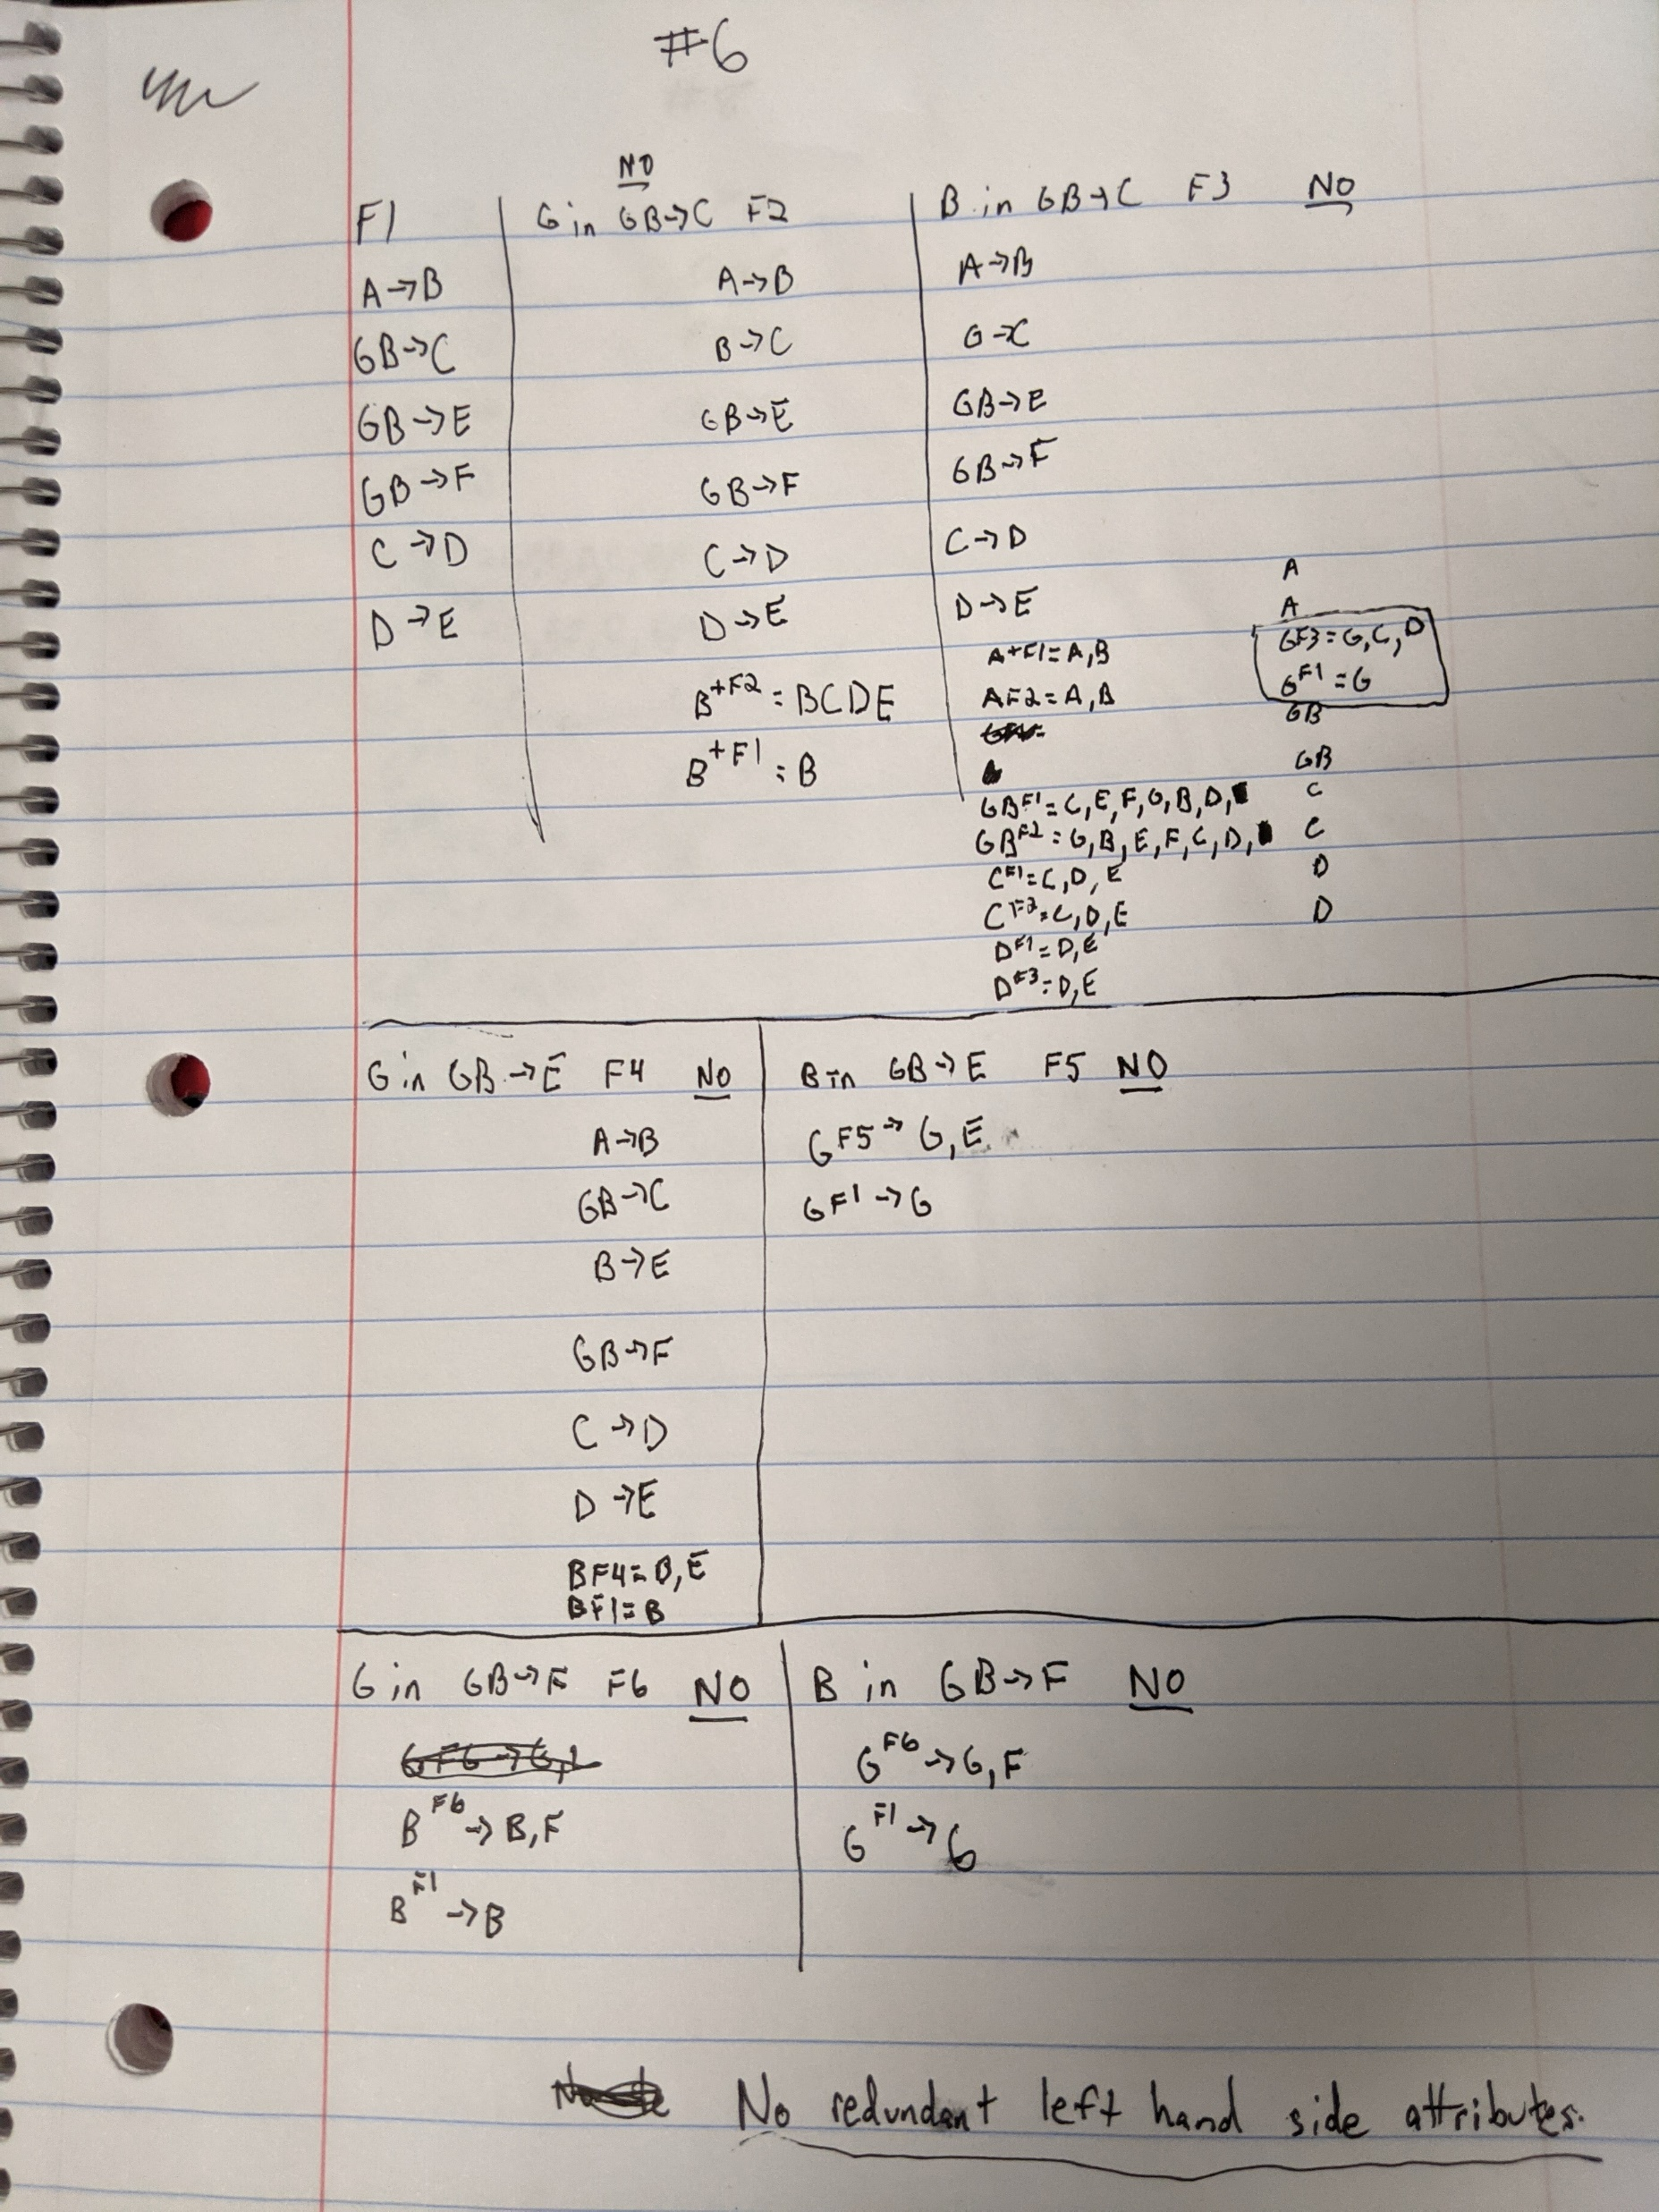 #6
NO
F1
A→B
GB→C
GB→E
GB→F
C→D
D→E
G in GB→C F2
A→B
B→C
GB→E
GB→F
C→D
D→E
B+F2 = BCDE
B+F1 = B
B in GB→C F3 NO
A→B
G→C
GB→E
GB→F
C→D
D→E
A+F1=A,B
AF2=A,B
GBF1=C,E,F,G,B,D,
GBF2=G,B,E,F,C,D,
CF1=C,D,E
CF2=C,D,E
DF1=D,E
DF3=D,E
A
A
GF3=G,C,D
GF1=G
GB
GB
C
C
D
D
G in GB→E F4 NO
A→B
GB→C
B→E
GB→F
C→D
D→E
BF4=B,E
BF1=B
B in GB→E F5 NO
GF5→G,E
GF1→G
G in GB→F F6 NO
BF6→B,F
BF1→B
B in GB→F NO
GF6→G,F
GF1→G
No redundant left hand side attributes.